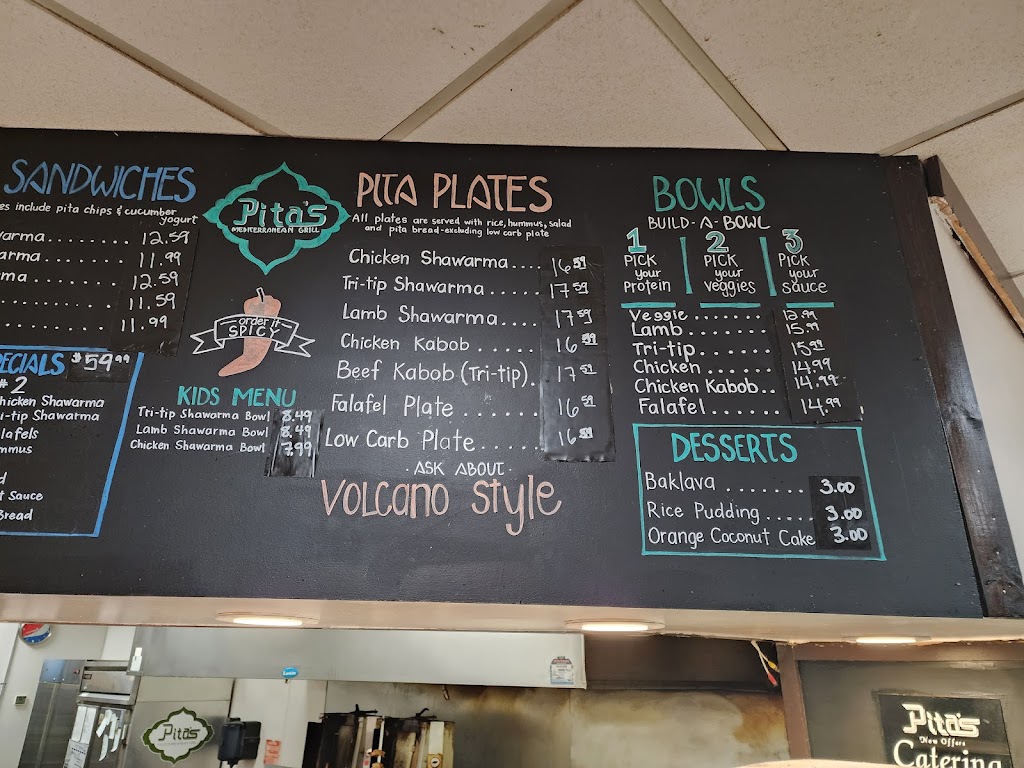 SANDWICHES
es include pita chips & cucumber
yogurt
warma........ 12.59
arma........ 11.99
rma........ 12.59
.......... 11.59
.......... 11.99
PECIALS $59.99
#2
Chicken Shawarma
ri-tip Shawarma
lafels
mmus
d
t Sauce
Bread
Pita's
MEDITERRANEAN GRILL
order it
SPICY
KIDS MENU
Tri-tip Shawarma Bowl 8.49
Lamb Shawarma Bowl 8.49
Chicken Shawarma Bowl 7.99
PITA PLATES
All plates are served with rice, hummus, salad
and pita bread-excluding low carb plate
Chicken Shawarma.... 16.59
Tri-tip Shawarma...... 17.59
Lamb Shawarma.... 17.59
Chicken Kabob ...... 16.59
Beef Kabob (Tri-tip). 17.59
Falafel Plate ....... 16.59
Low Carb Plate ...... 16.59
· ASK ABOUT ·
VOLCANO Style
BOWLS
BUILD-A-BOWL
1 2 3
PICK your Protein
PICK your veggies
PICK your sauce
Veggie.......... 12.99
Lamb.......... 15.99
Tri-tip....... 15.99
Chicken....... 14.99
Chicken Kabob.. 14.99
Falafel....... 14.99
DESSERTS
Baklava ........ 3.00
Rice Pudding ..... 3.00
Orange Coconut Cake 3.00
Pitas
Pita's
Now Offers
Catering